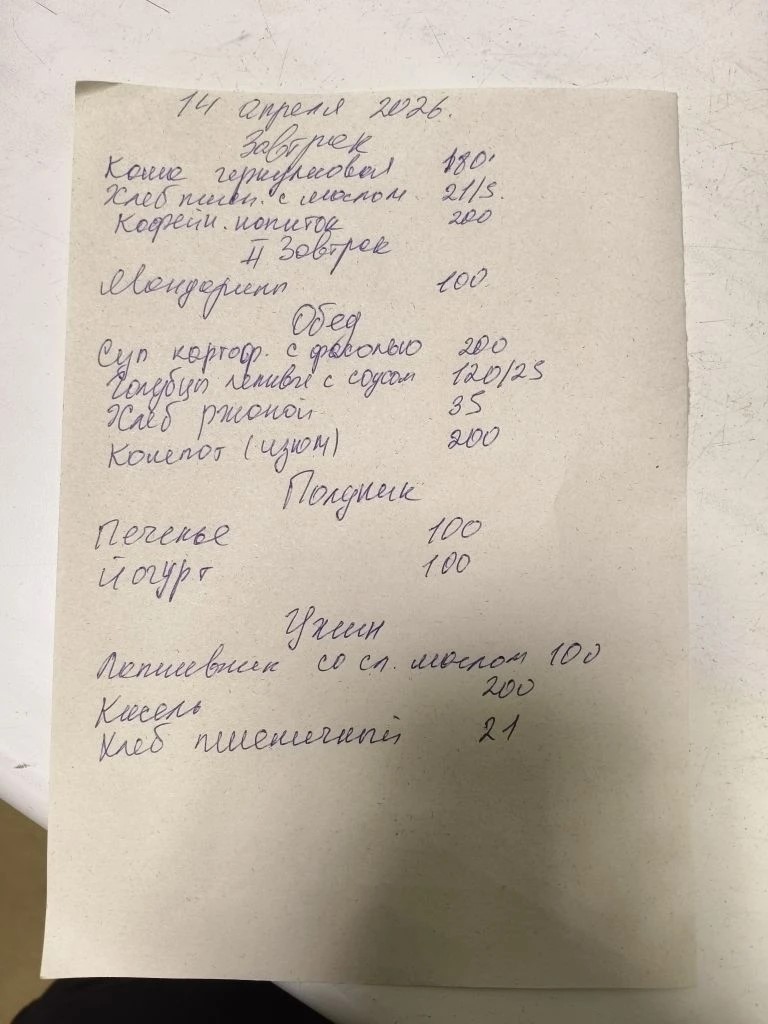 14 апреля 2026.
Завтрак
Каша геркулесовая 180
Хлеб пшен. с маслом 21/5.
Кофейн. напиток 200
II Завтрак
Мандарины 100
Обед
Суп картоф. с фасолью 200
Голубцы ленивые с соусом 120/25
Хлеб ржаной 35
Компот (изюм) 200
Полдник
Печенье 100
Йогурт 100
Ужин
Лапшевник со сл. маслом 100
Кисель 200
Хлеб пшеничный 21